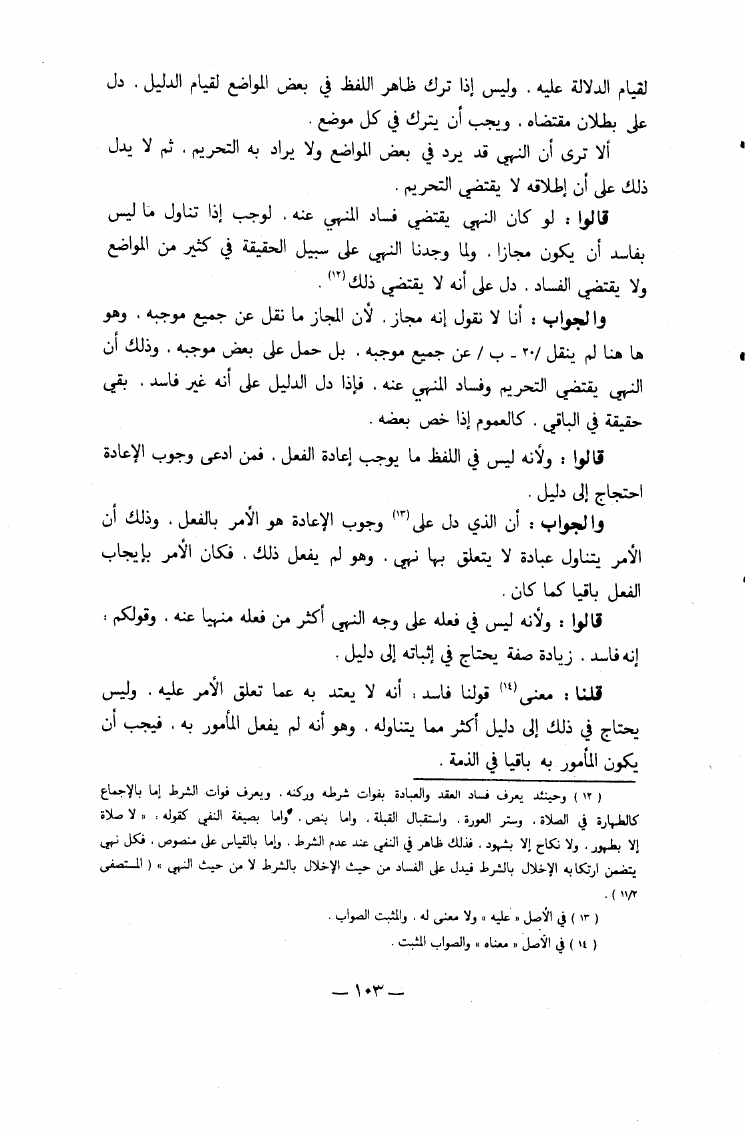 لقيام الدلالة عليه . وليس إذا ترك ظاهر اللفظ في بعض المواضع لقيام الدليل . دل
على بطلان مقتضاه . ويجب أن يترك في كل موضع .
ألا ترى أن النهي قد يرد في بعض المواضع ولا يراد به التحريم . ثم لا يدل
ذلك على أن إطلاقه لا يقتضي التحريم .
قالوا : لو كان النهي يقتضي فساد المنهي عنه . لوجب إذا تناول ما ليس
بفاسد أن يكون مجازا . ولما وجدنا النهي على سبيل الحقيقة في كثير من المواضع
ولا يقتضي الفساد . دل على أنه لا يقتضي ذلك (١٢) .
والجواب : أنا لا نقول إنه مجاز . لأن المجاز ما نقل عن جميع موجبه . وهو
ها هنا لم ينقل /٢٠ ـ ب / عن جميع موجبه . بل حمل على بعض موجبه . وذلك أن
النهي يقتضي التحريم وفساد المنهي عنه . فإذا دل الدليل على أنه غير فاسد . بقي
حقيقة في الباقي . كالعموم إذا خص بعضه .
قالوا : ولأنه ليس في اللفظ ما يوجب إعادة الفعل . فمن ادعى وجوب الإعادة
احتجاج إلى دليل .
والجواب : أن الذي دل على (١٣) وجوب الإعادة هو الأمر بالفعل . وذلك أن
الأمر يتناول عبادة لا يتعلق بها نهي . وهو لم يفعل ذلك . فكان الأمر بإيجاب
الفعل باقيا كما كان .
قالوا : ولأنه ليس في فعله على وجه النهي أكثر من فعله منهيا عنه . وقولكم :
إنه فاسد . زيادة صفة يحتاج في إثباته إلى دليل .
قلنا : معنى (١٤) قولنا فاسد : أنه لا يعتد به عما تعلق الأمر عليه . وليس
يحتاج في ذلك إلى دليل أكثر مما يتناوله . وهو أنه لم يفعل المأمور به . فيجب أن
يكون المأمور به باقيا في الذمة .
( ١٢ ) وحينئذ يعرف فساد العقد والعبادة بفوات شرطه وركنه . ويعرف فوات الشرط إما بالإجماع
كالطهارة في الصلاة . وستر العورة . واستقبال القبلة . واما بنص . واما بصيغة النفي كقوله : « لا صلاة
إلا بطهور . ولا نكاح إلا بشهود . فذلك ظاهر في النفي عند عدم الشرط . وإما بالقياس على منصوص . فكل نهي
يتضمن ارتكابه الإخلال بالشرط فيدل على الفساد من حيث الإخلال بالشرط لا من حيث النهي » ( المستصفى
١١/٢ ) .
( ١٣ ) في الأصل « عليه » ولا معنى له . والمثبت الصواب .
( ١٤ ) في الأصل « معناه » والصواب المثبت .
— ١٠٣ —